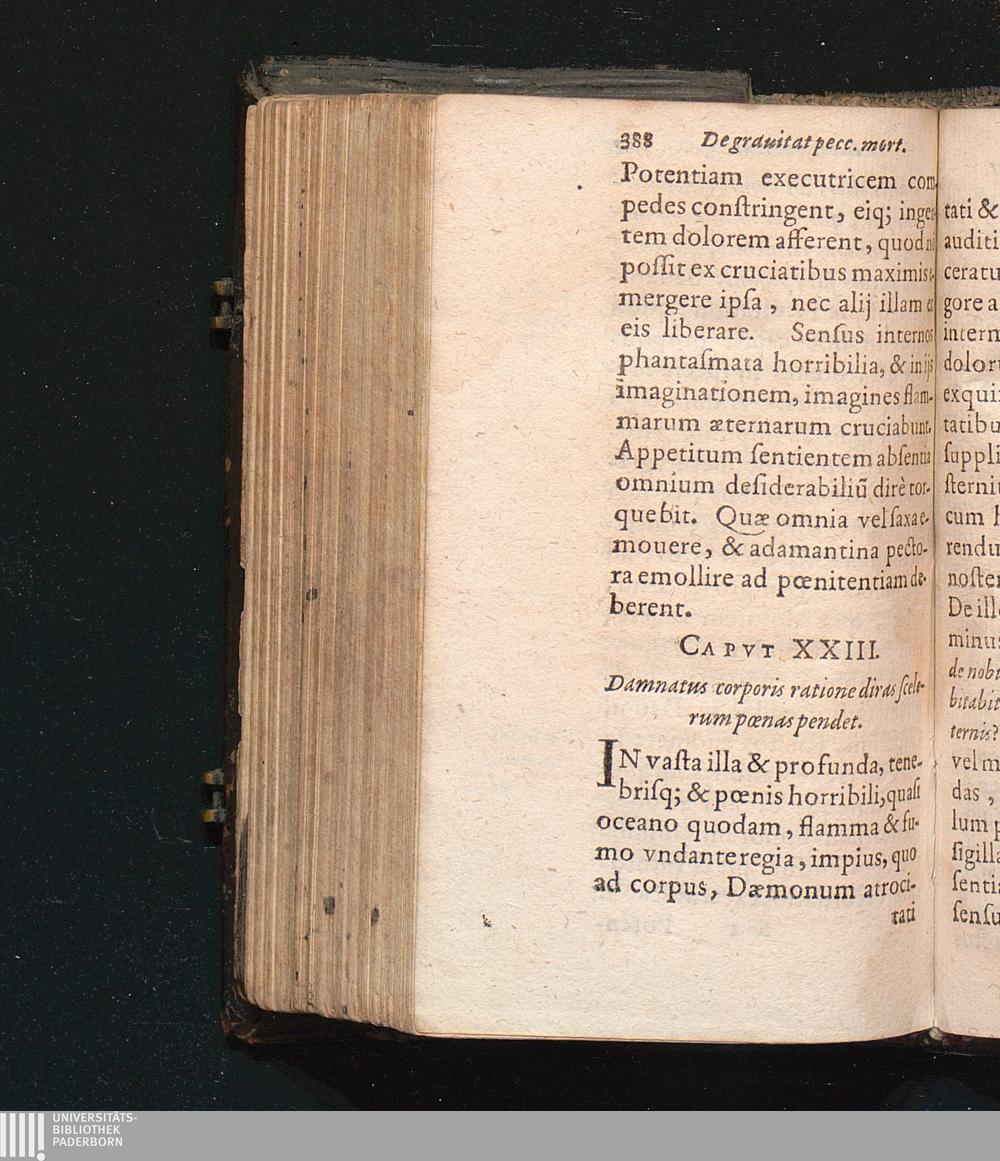 388 De grauitat pecc. mort.
Potentiam executricem com
pedes conſtringent, eiq; inge
tem dolorem afferent, quod
poſſit ex cruciatibus maximis
mergere ipſa, nec alij illam
eis liberare. Senſus internos
phantaſmata horribilia, & in ijs
imaginationem, imagines flam-
marum æternarum cruciabunt.
Appetitum ſentientem abſentia
omnium deſiderabiliũ dirè tor-
quebit. Quæ omnia vel ſaxa e-
mouere, & adamantina pecto-
ra emollire ad pœnitentiam de-
berent.
CAPVT XXIII.
Damnatus corporis ratione diras ſcele-
rum pœnas pendet.
IN vaſta illa & profunda, tene-
briſq; & pœnis horribili, quaſi
oceano quodam, flamma & fu-
mo vndante regia, impius, quo
ad corpus, Dæmonum atroci-
tati
tati &
auditi
ceratu
gore a
intern
dolor
exqui
tatibu
ſuppli
ſterni
cum
rendu
noſter
De ill
minus
de nobi
bitabit
ternis?
vel m
das,
lum
ſigilla
ſentia
ſenſu
UNIVERSITÄTS-
BIBLIOTHEK
PADERBORN